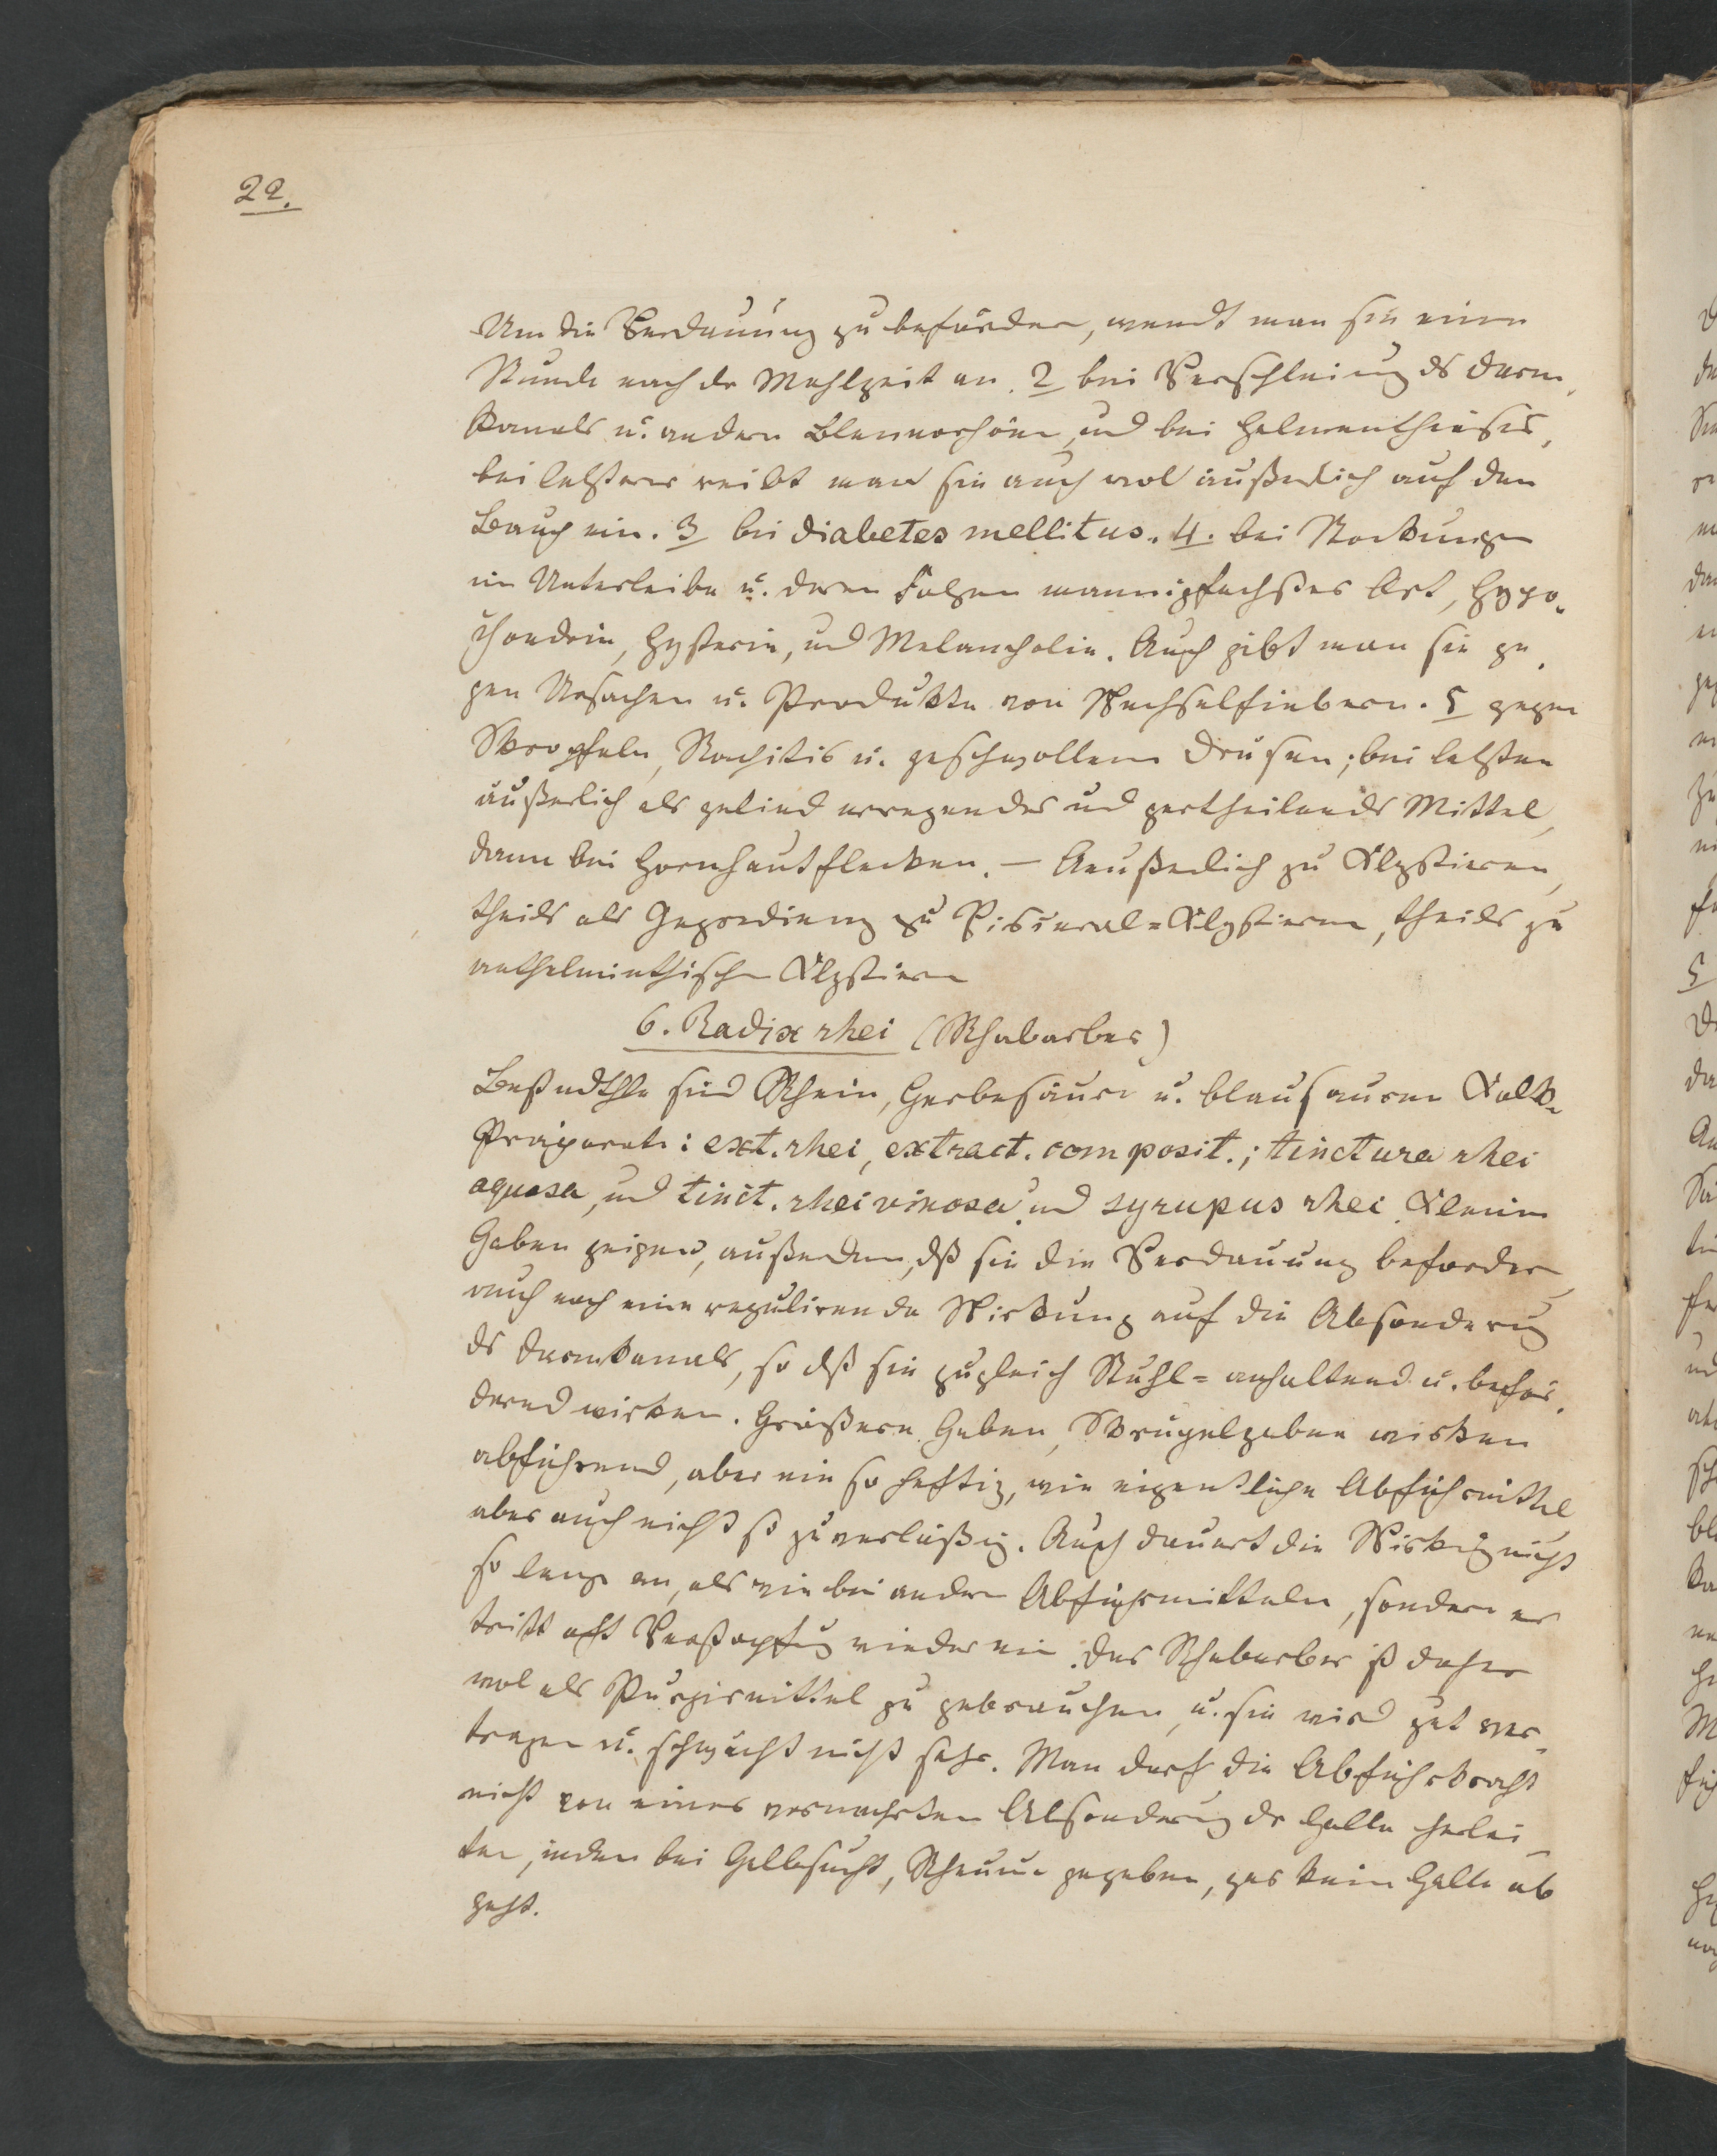 22.
Um die Verdauung zu befördern, wendt man sie eine
Stunde nach der Mahlzeit an. 2 bei Verschleimung ds Darm¬
kanals u. andern Blennorhöen, und bei Helminthiasis,
bei letzterer reibt man sie auch wol äußerlich auf den
Bauch ein. 3 bei diabetes mellitus. 4. bei Stockungen
im Unterleibe u. deren Folgen mannigfachster Art, Hypo¬
chondrie, Hysterie, und Melancholie. Auch gibt man sie ge¬
gen Ursachen u. Produkte von Wechselfiebern. 5 gegen
Skropfeln, Rachitis u. geschwollene Drüsen; bei letzten
äußerlich als gelind erregendes und zertheilends Mittel,
dann bei Hornhautflecken. — Aeußerlich zu Klystieren,
theils als zu Visceral-Klystieren, theils zu
anthelminthischen Klystiren
6. Radix rhei (Rhabarber)
Bestndthle sind Rhein, Gerbesäure u. blausauren Kalk.
Präparate: ext. rhei, extract. composit.; tinctura rhei
aquosa, und tinct. rhei vinosa und syrupus rhei. Kleine
Gaben zeigen, außerdem, dß sie die Verdauung befordern,
auch noch eine regulirende Wirkung auf die Absonderung
ds Darmkanals, so dß sie zugleich Stuhl-anhaltend u. beför¬
dernd wirken. Größere Gaben, Skrupelgaben wirken
abführend, aber nie so heftig, wie eigentliche Abführmittel
aber auch nicht so zuverläßig. Auch dauert die Wirkung nicht
so lange an, als wie bei andern Abführmitteln, sondern es
tritt oft Verstopfung wieder ein. Das Rhabarber ist daher
wol als Purgirmittel zu gebrauchen, u. sie wird gut ver¬
tragen u. schwächt nicht sehr. Man darf die Abführkraft
nicht von einer vermehrten Absonderung dr Galle herlei¬
ten, indem bei Gelbsucht, Rheum gegeben, gar keine Galle ab
geht.